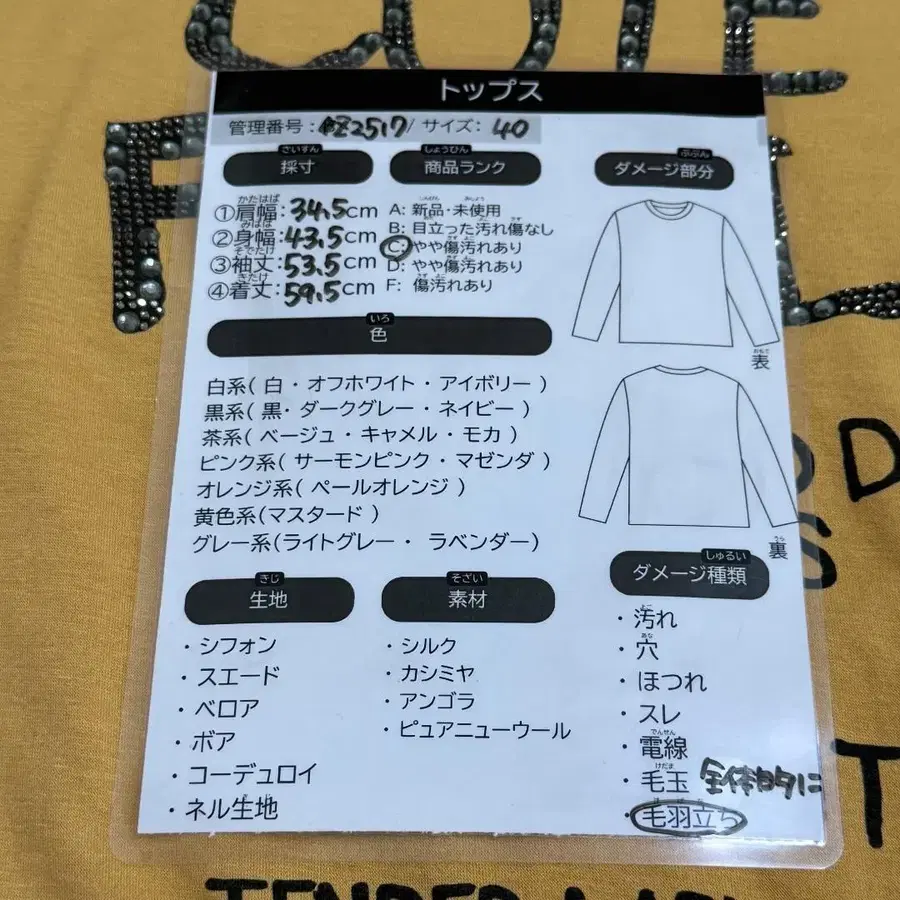 CUTE
トップス
管理番号: 2517/ サイズ: 40
さいすん
採寸
しょうひん
商品ランク
ぶぶん
ダメージ部分
かたはば
①肩幅:34.5cm
みはば
②身幅:43.5cm
そでたけ
③袖丈:53.5cm
きたけ
④着丈:59.5cm
A: 新品・未使用
B: 目立った汚れ傷なし
C: やや傷汚れあり
D: やや傷汚れあり
F: 傷汚れあり
おもて
表
うら
裏
いろ
色
白系( 白・オフホワイト・アイボリー )
黒系( 黒・ダークグレー・ネイビー )
茶系( ベージュ・キャメル・モカ )
ピンク系( サーモンピンク・マゼンダ )
オレンジ系( ペールオレンジ )
黄色系(マスタード )
グレー系(ライトグレー・ ラベンダー)
きじ
生地
・シフォン
・スエード
・ベロア
・ボア
・コーデュロイ
・ネル生地
そざい
素材
・シルク
・カシミヤ
・アンゴラ
・ピュアニューウール
しゅるい
ダメージ種類
よご
・汚れ
あな
・穴
・ほつれ
・スレ
でんせん
・電線
けだま
・毛玉 全体的に
けばだ
・毛羽立ち
D
S
T
TENDER